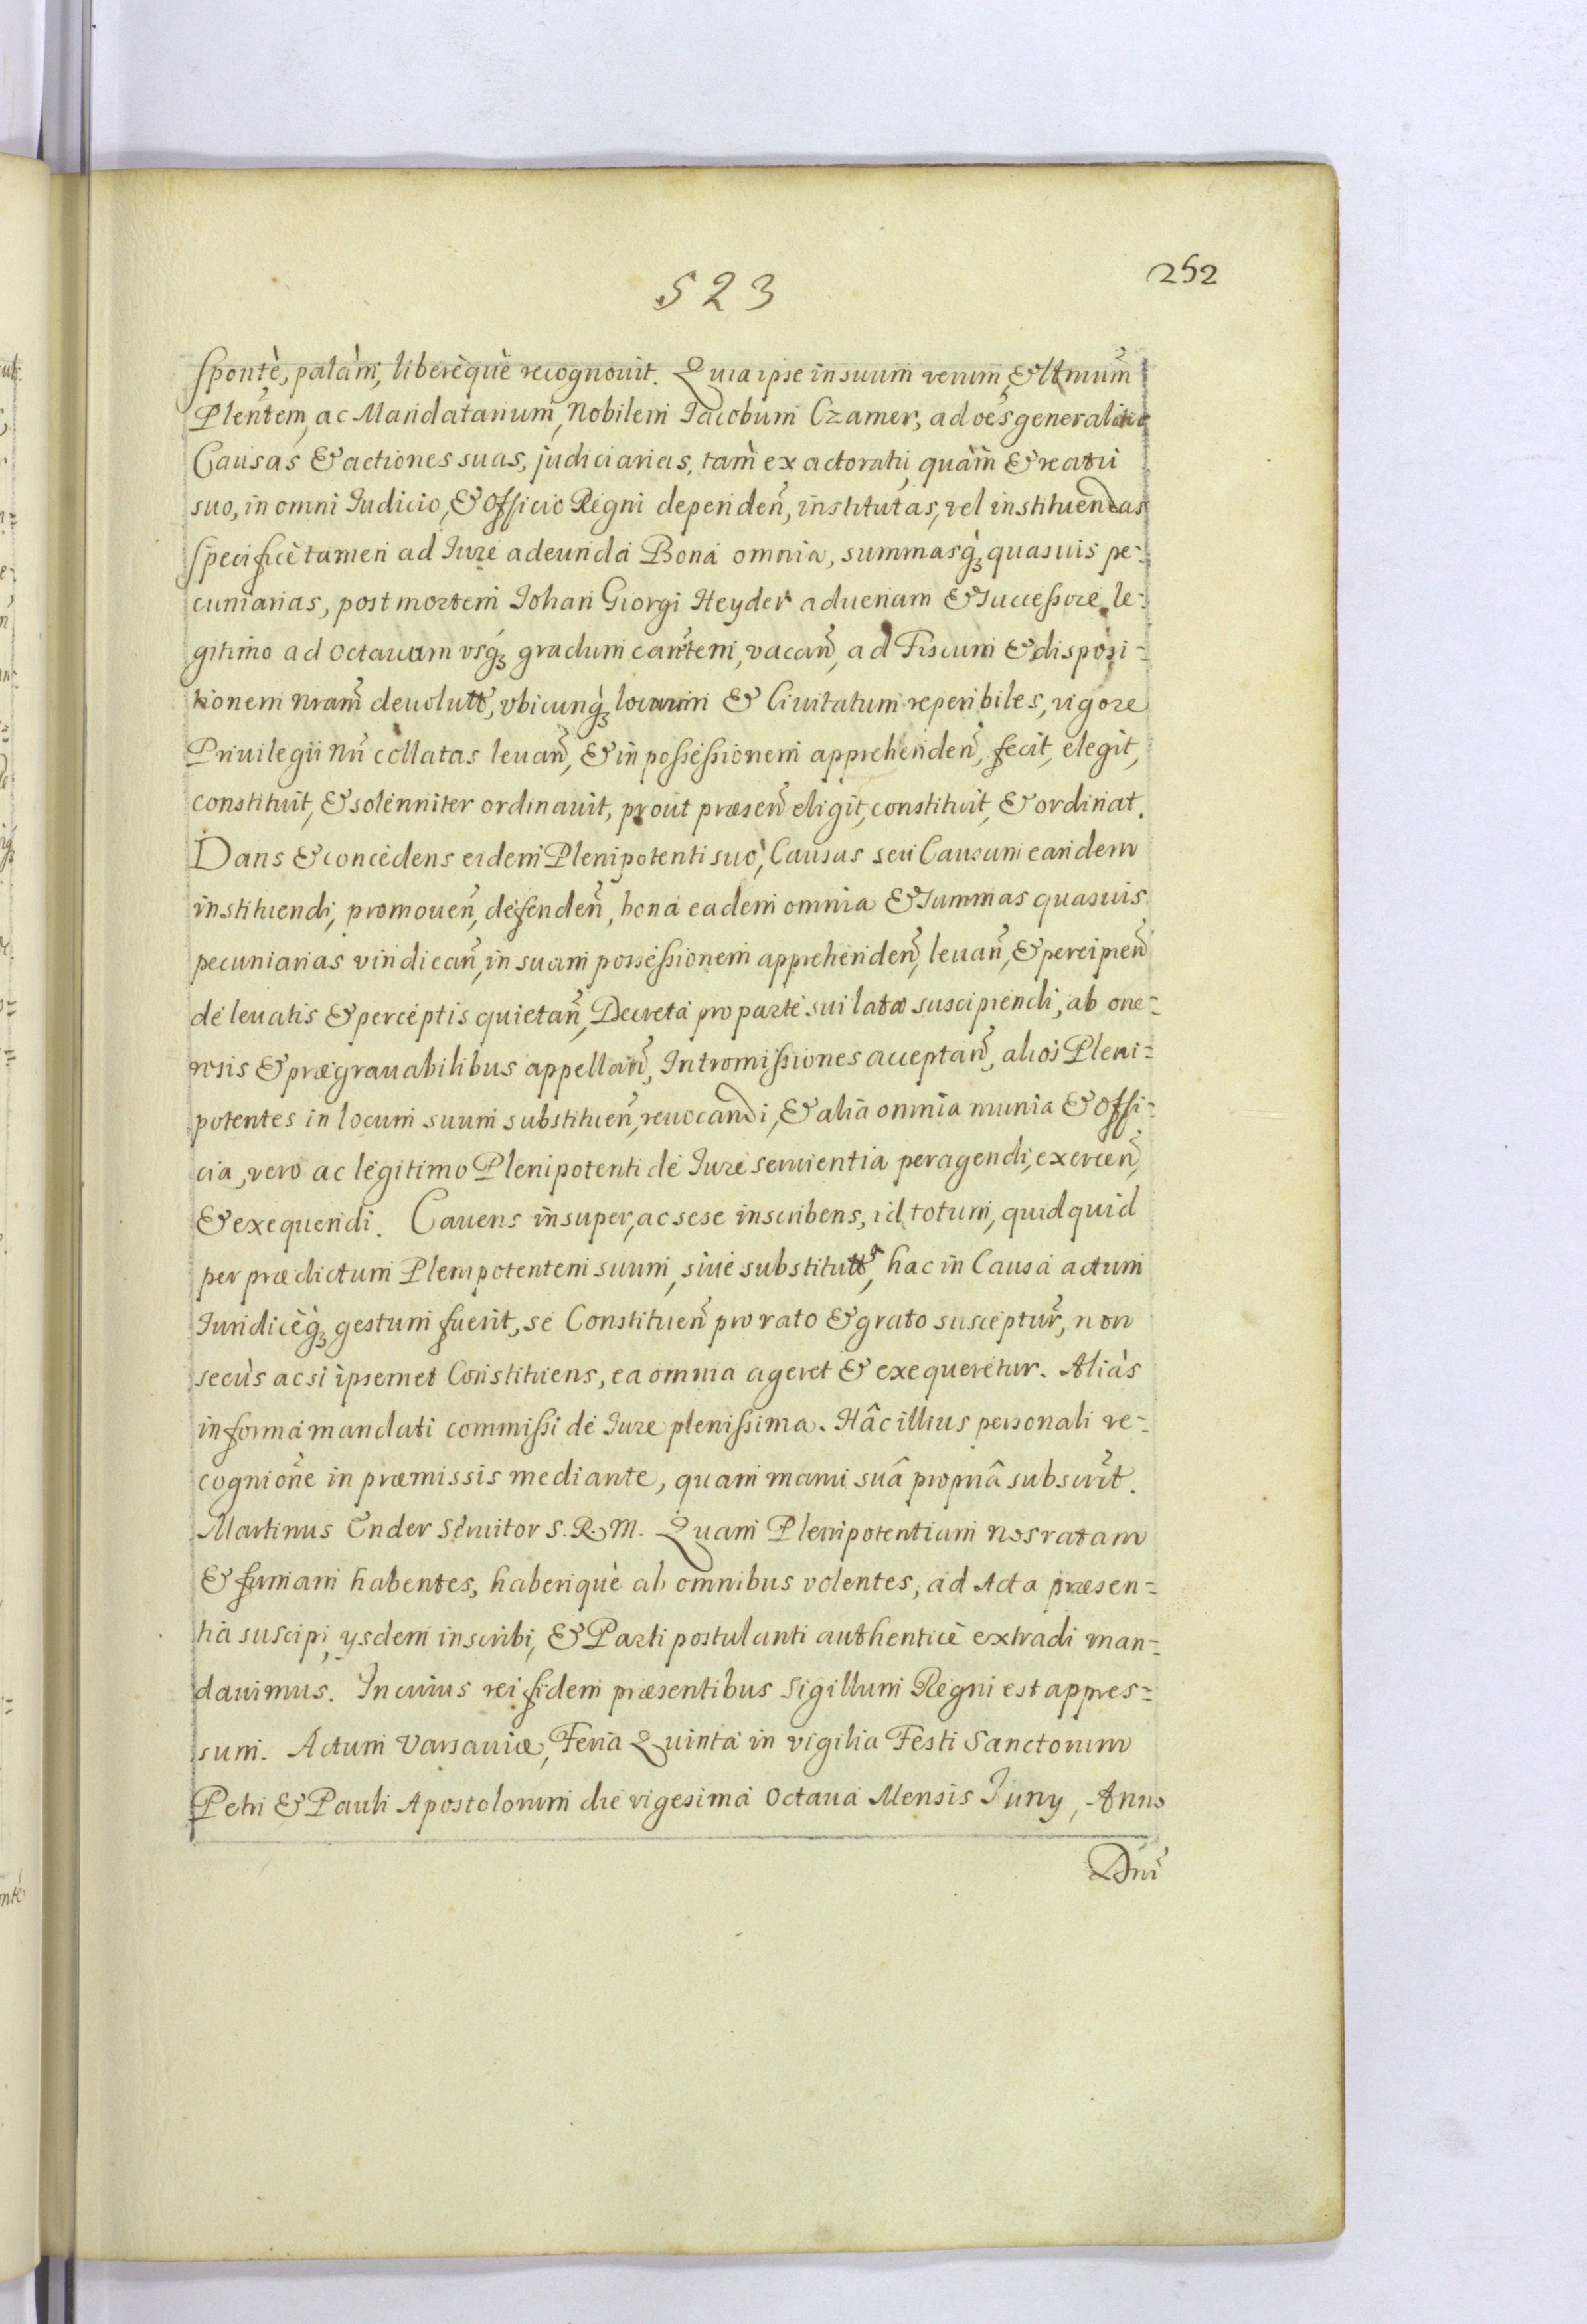 523
252
spontè, palàm, liberèquè recognouit. Quia ipse in suum verum, & ltmum
Plentem, ac Mandatarium, Nobilem Iacobum Czamer, ad oes generaliter
Causas & actiones suas, judiciarias, tam ex actoratu, quàm & reatu
suo, in omni Iudicio, & Officio Regni dependen, institutas, vel instituendas
specificè tamen ad Iure adeunda Bona omnia, summasq quasuis pe-
cuniarias, post mortem Iohan Giorgi Heyder aduenam & Successore le-
gitimo ad octauum vsq gradum carentem, vacan, ad Fiscum & disposi-
tionem nram deuolutt, vbicunq locorum & Ciuitatum reperibiles, vigore
Priuilegii nri collatas leuan, & in possessionem apprehenden, fecit, elegit,
constituit, & solenniter ordinauit, prout præsen eligit, constituit, & ordinat.
Dans & concedens eidem Plenipotenti suo, Causas seu Causam eandem
instituendi, promouen, defenden, bona eadem omnia & Summas quasuis
pecuniarias vindican, in suam possessionem apprehenden, leuan, & percipien
de leuatis & perceptis quietan, Decreta pro parte sui lata suscipiendi, ab one-
rosis & prægrauabilibus appellan, Intromissiones acceptan, alios Pleni-
potentes in locum suum substituen, reuocandi, & alia omnia munia & offi-
cia, vero ac legitimo Plenipotenti de Iure seruientia peragendi, exercen,
& exequendi. Cauens insuper, ac sese inscribens, id totum, quidquid
per prædictum Plenipotentem suum, siue substitutt, hac in Causa actum
Iuridicèq gestum fuerit, se Constituen pro rato & grato susceptur, non
secùs ac si ipsemet Constituens, ea omnia ageret & exequeretur. Aliàs
in forma mandati commissi de Iure plenissima. Hâc illius personali re-
cognione in præmissis mediante, quam manu suâ propriâ subscrit.
Martinus Ender Seruitor S. R. M. Quam Plenipotentiam nos ratam
& firmam habentes, haberiquè ab omnibus volentes, ad Acta præsen-
tia suscipi, ysdem inscribi, & Parti postulanti authenticè extradi man-
dauimus. In cuius rei fidem præsentibus Sigillum Regni est appres-
sum. Actum Varsauiæ, Feria Quinta in vigilia Festi Sanctorum
Petri & Pauli Apostolorum die vigesima octaua Mensis Iuny, Anno
Dni